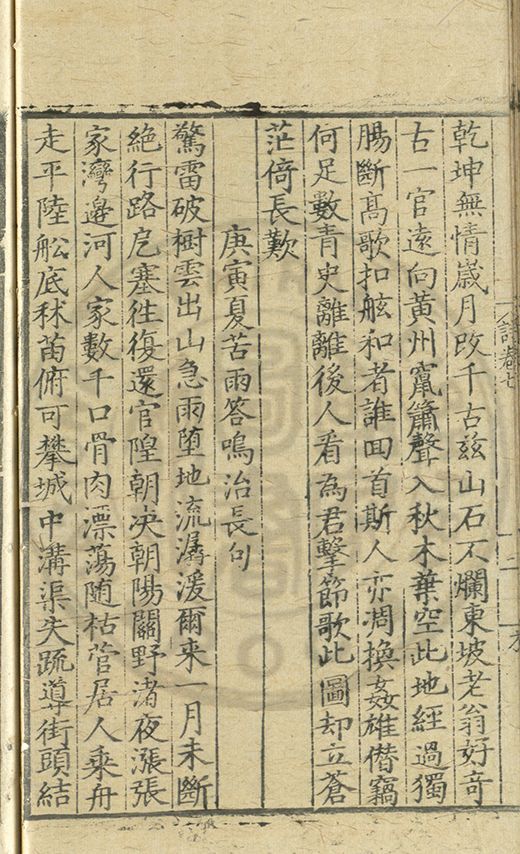 乾坤無情歲月改千古茲山石不爛東坡老翁好奇
古一官遠向黃州竄簫聲入秋木葉空此地經過獨
腸斷高歌扣舷和者誰回首斯人亦凋換姦雄僭竊
何足數青史離離後人看為君擊節歌此圖却立蒼
茫倚長歎
庚寅夏苦雨答鳴治長句
驚雷破樹雲出山急雨墮地流潺湲爾來一月未斷
絕行路戹塞徃復還官隍朝决朝陽關野渚夜漲張
家灣邊河人家數千口骨肉漂蕩随枯菅居人乘舟
走平陸舩底秫苗俯可攀城中溝渠失疏導街頭結
詩卷七
二